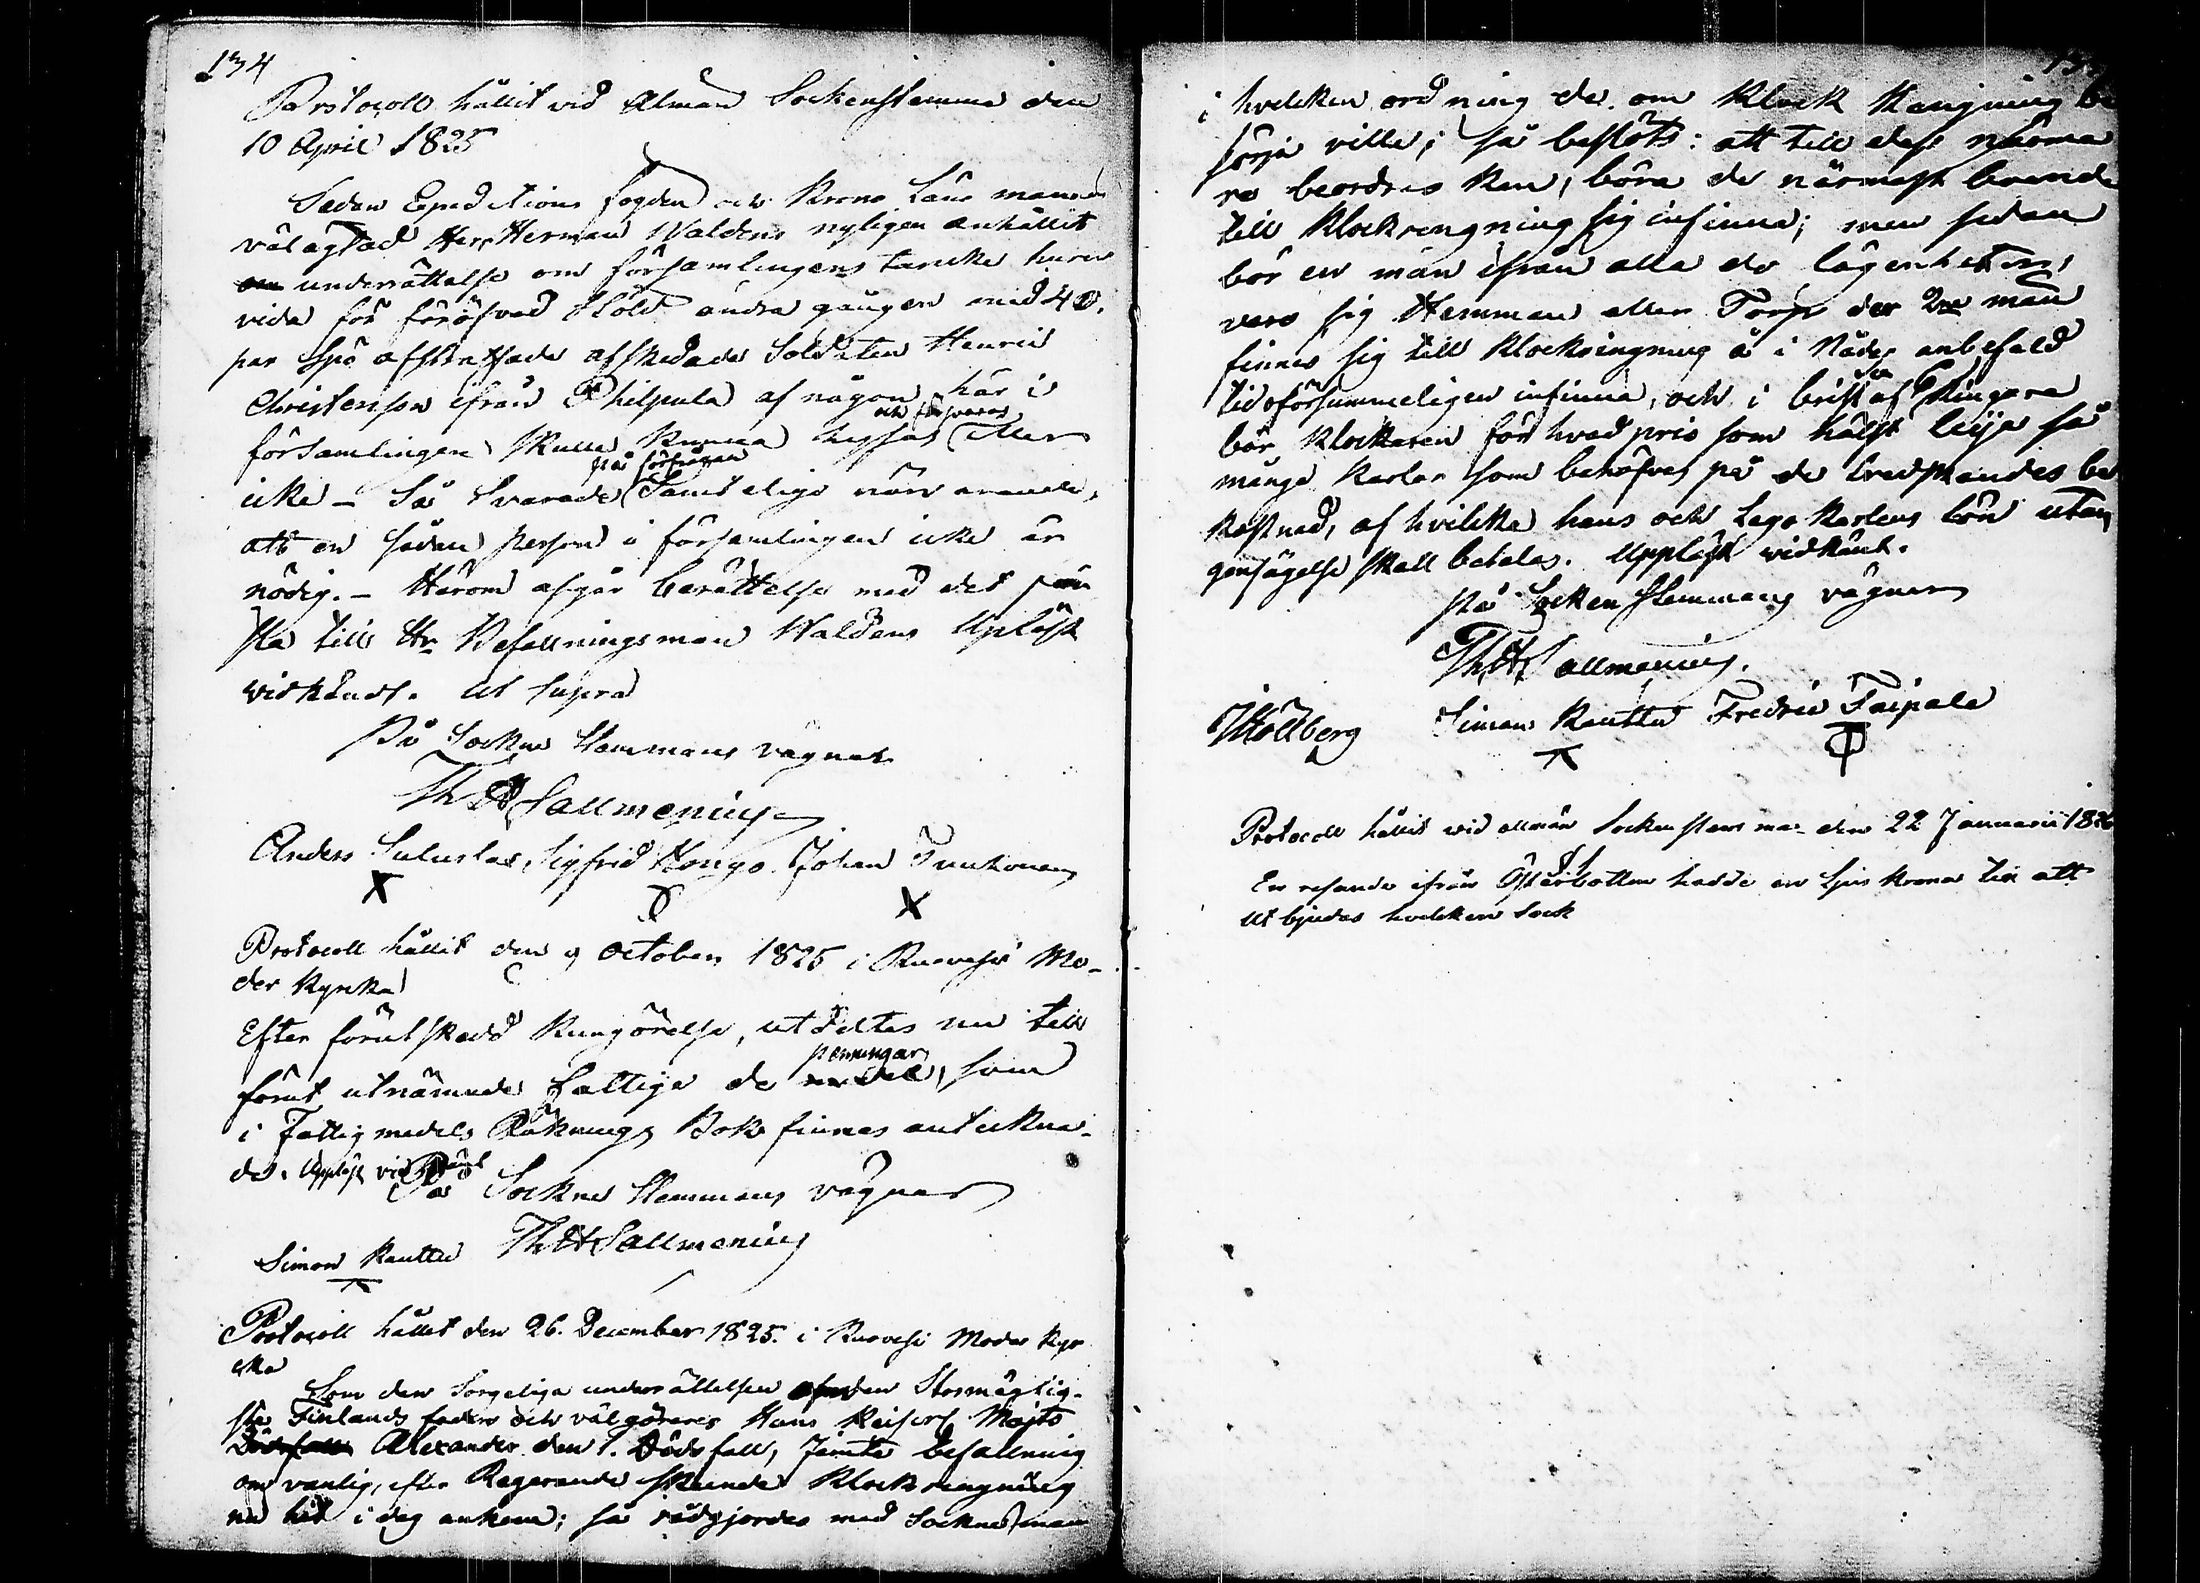 134
Protocoll hållit vid Alman Sockenstemma den
10 April 1825
Sedan Expeditions fogden och Krono Läns mannen
välagtad Herr Herman Waldens nyligen anhållit
om underrättelse om församlingens tancke huru
vida för föröfvad stöld andra gången med 40.
par spö afstraffade afskedade Soldaten Henric
Christersson ifrån Philpula af någon här i
församlingen skulle kunna hysas och försvaras eller
icke – Så svarade på förfrågan Samtelige närvarande,
att en sådan person i församlingen icke är
nödig. – Härom afgår berättelse med det
sta till Hr Befallningsman Waldens Upläst
widkändt. Ut supra
På Sockne Stemmans vägnar
Th H Sallmenius
Anders Suluslax Sigfrid Hongo Johan Tuuhonen
X X
Protocoll hållit den 9 October 1825 i Ruovesi Mo-
der Kyrka
Efter förut skedd kungörelse, utdeltes nu till
förut utnämnde fattige de penningar, som
i Fattigmedels Räknings Bok finnes anteckna-
de. Uppläst vidkänt
På Sockne Stemmans vägnar
Th H Sallmenius
Simon Rauttu
Protocoll hållit den 26. December 1825. i Ruovesi Moder Kyr
cka
Som den Sorgeliga underrättelsen om den Stormägtig-
ste Finlands fader och välgörares Hans Keiserl Majts
Dödsfall Alexander den 1. Dödsfall, jämte befallning
om vanlig, efter Regerande skeende Klockringning
nu hit i dag ankom; så rådgjordes med Sockne man
i hvilcken ordning de om Klock Rangning be
sörja ville; så beslöts: att till dess närma
re beordras kan, böra de närmast boende
till Klockringning sig infinna; men sedan
bör en man ifrån alla de lägenheter,
vare sig Hemman eller Torp der 2ne män
finnes sig till Klockringning å i Nåder anbefald
tid oförsummeligen infinna, och i brist af Ringare
bör Klockaren för hvad pris som hälst leija så
många Karlar som behöfves på de tredskandes be
kostnad, af hvilcka hans och Lego Karlens lön utan
gensägelse skall betalas. Uppläst widkänt.
På Socken Stemmans vägnar
Th H Sallmenius.
Höllberg Simon Rauttu Fredric Taipale
Protocoll hållit wid allmän Sockenstemma den 22 Januarii 1826
En resande ifrån Österbotten hadde en ljus krona till att
ut bjudas hvilcken Sock